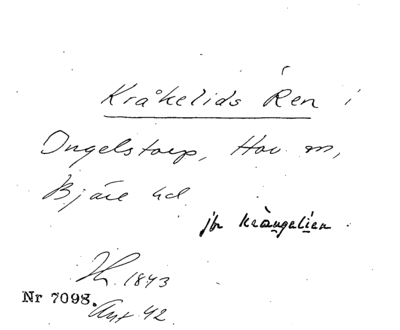 Kråkelids Ren i
Ingelstorp, Hov sn,
Bjäre hd
jfr kràngelien
1843
Nr 7098.
Ant 42